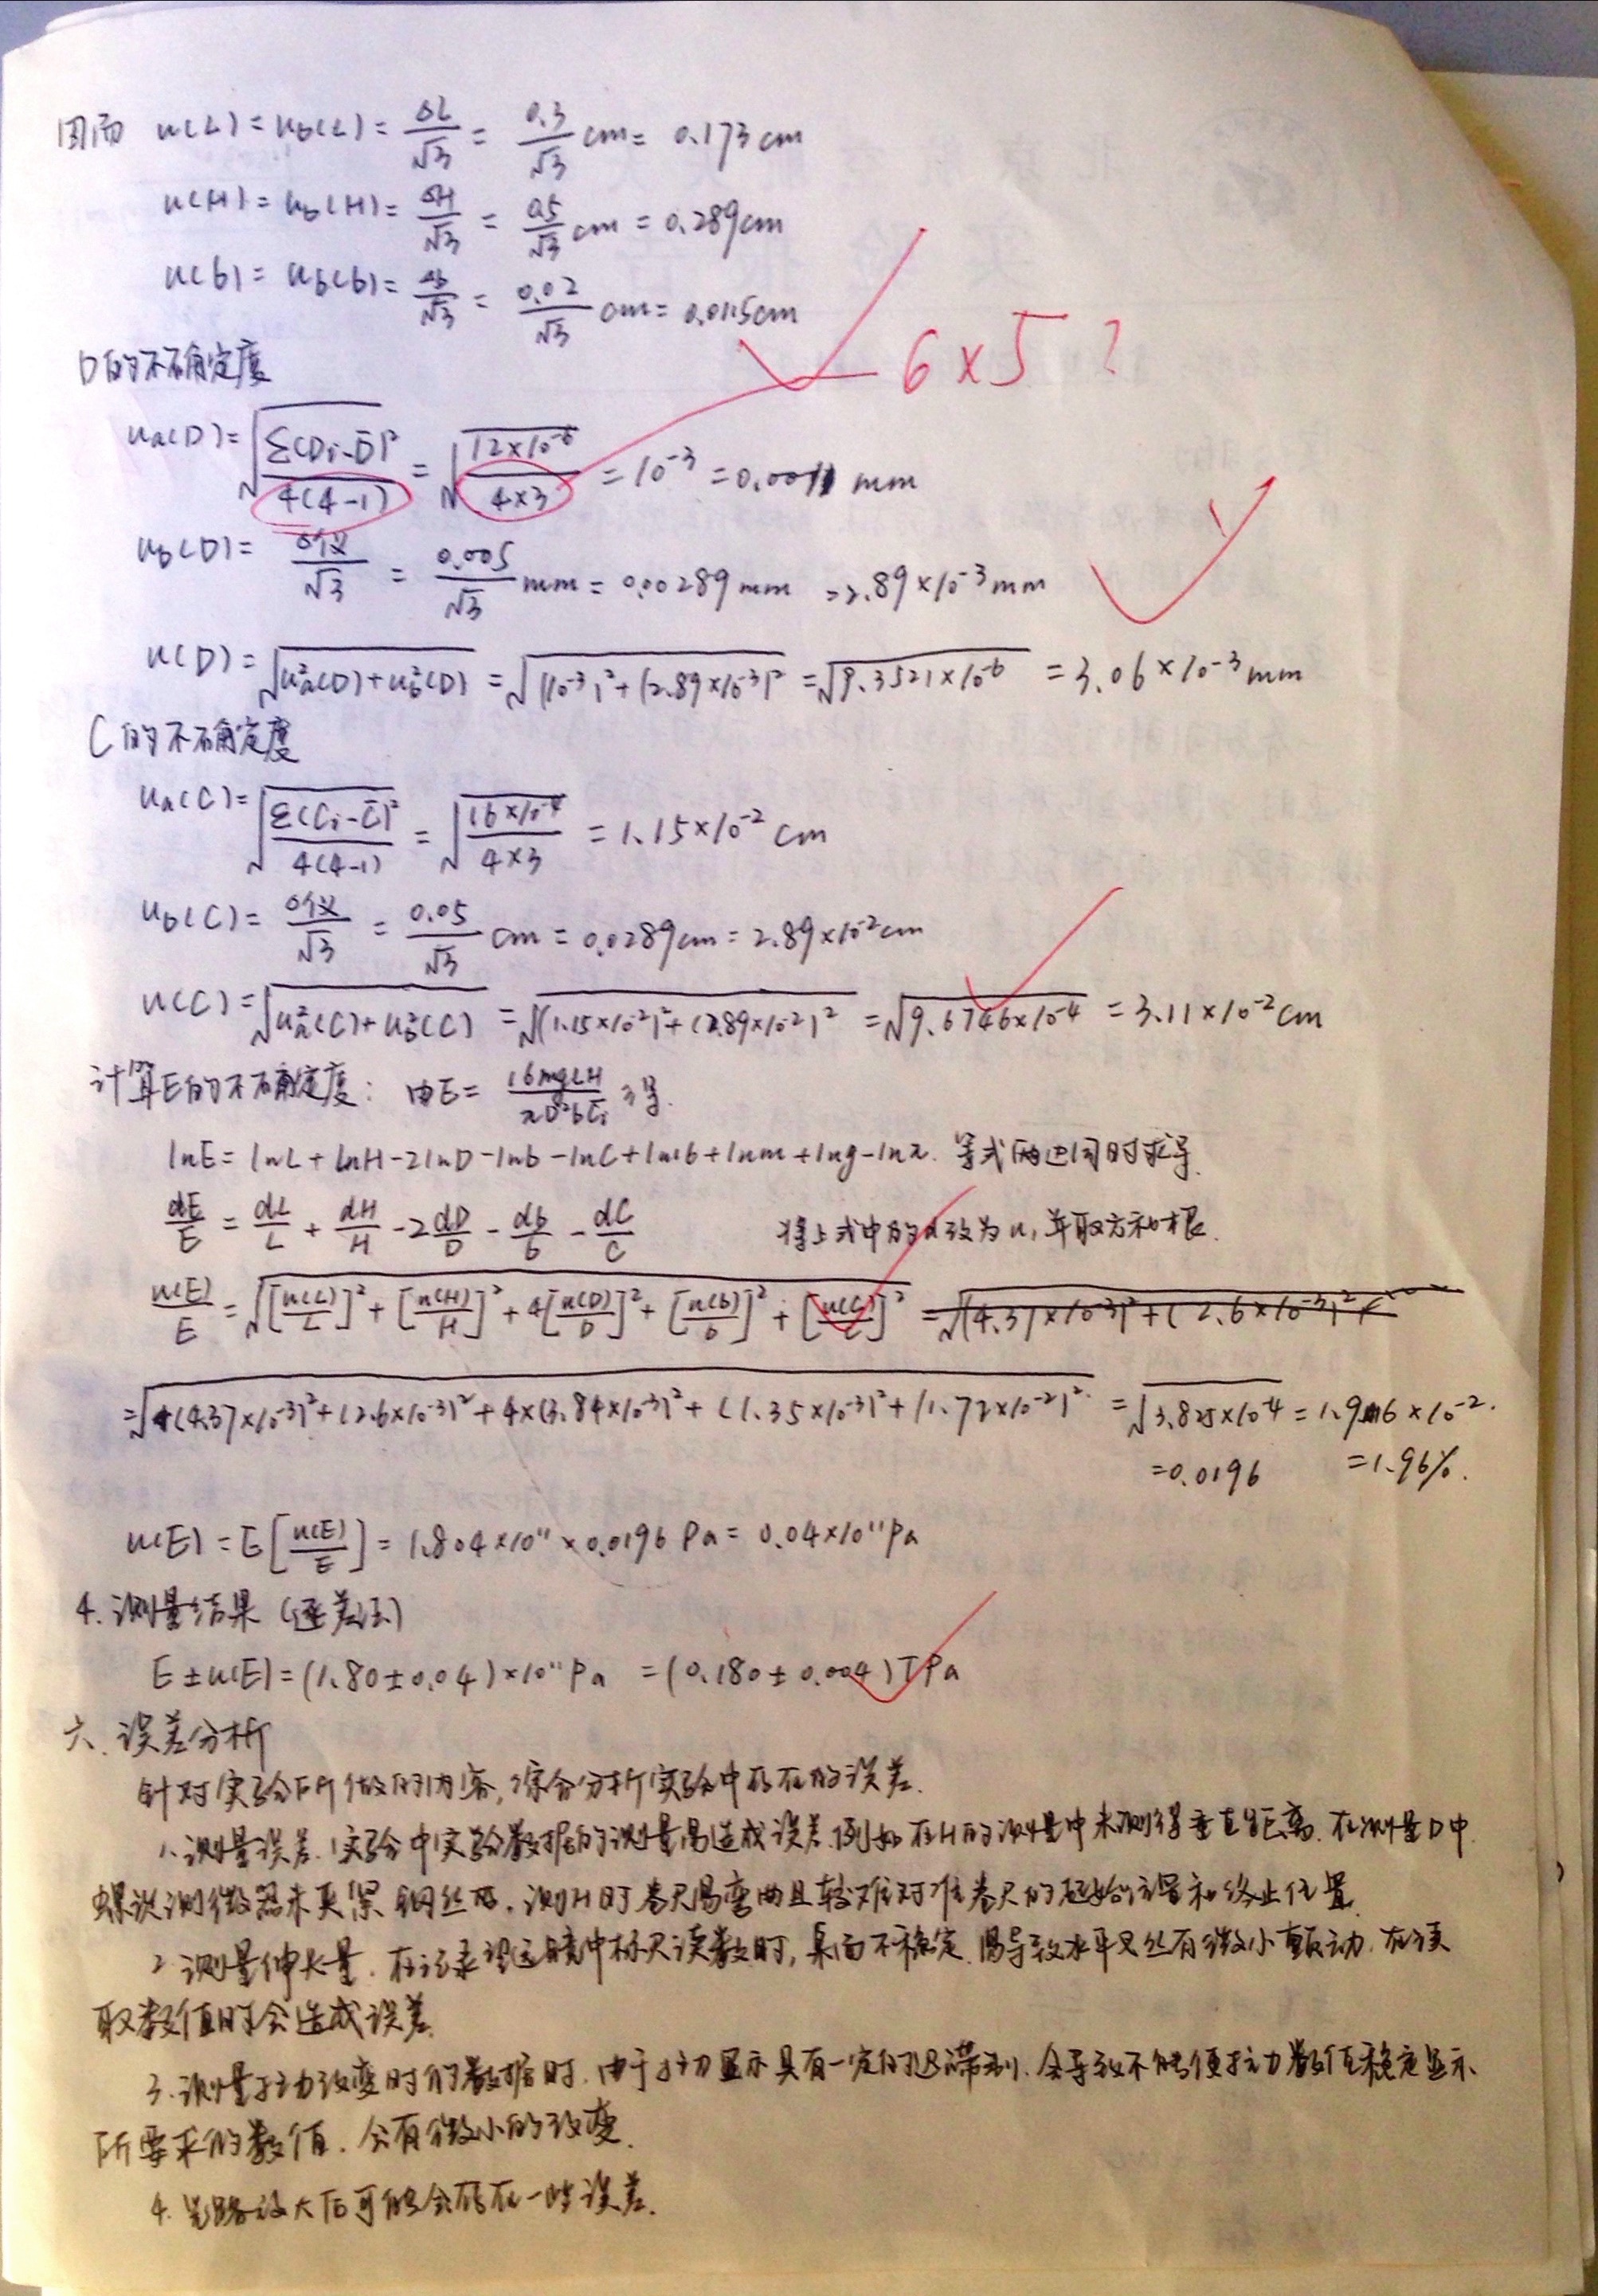 因而 u(L) = u_b(L) = ΔL/√3 = 0.3/√3 cm = 0.173 cm
u(H) = u_b(H) = ΔH/√3 = 0.5/√3 cm = 0.289cm
u(b) = u_b(b) = Δb/√3 = 0.02/√3 cm = 0.0115cm
D的不确定度
6×5?
u_a(D) = √(Σ(Di-D̄)²/4(4-1)) = √(12×10⁻⁶/4×3) = 10⁻³ = 0.001 mm
u_b(D) = Δ仪/√3 = 0.005/√3 mm = 0.00289 mm = 2.89×10⁻³mm
u(D) = √(u_a²(D)+u_b²(D)) = √((10⁻³)²+(2.89×10⁻³)²) = √(9.3521×10⁻⁶) = 3.06×10⁻³mm
C的不确定度
u_a(C) = √(Σ(Ci-C̄)²/4(4-1)) = √(16×10⁻⁴/4×3) = 1.15×10⁻² cm
u_b(C) = Δ仪/√3 = 0.05/√3 cm = 0.0289cm = 2.89×10⁻²cm
u(C) = √(u_a²(C)+u_b²(C)) = √((1.15×10⁻²)²+(2.89×10⁻²)²) = √(9.6746×10⁻⁴) = 3.11×10⁻²cm
计算E的不确定度: 由E = 16mgLH/πD²bC̄i 得.
lnE = lnL+lnH-2lnD-lnb-lnC+ln16+lnm+lng-lnπ. 等式两边同时求导.
dE/E = dL/L + dH/H - 2dD/D - db/b - dC/C 将上式中的d改为u,并取方和根.
u(E)/E = √([u(L)/L]²+[u(H)/H]²+4[u(D)/D]²+[u(b)/b]²+[u(C)/C]²) = √((4.37×10⁻³)²+(2.6×10⁻³)²+
= √((4.37×10⁻³)²+(2.6×10⁻³)²+4×(3.84×10⁻³)²+(1.35×10⁻³)²+(1.72×10⁻²)²) = √(3.825×10⁻⁴) = 1.96×10⁻².
=0.0196 =1.96%.
u(E) = E[u(E)/E] = 1.804×10¹¹×0.0196 Pa = 0.04×10¹¹Pa
4.测量结果(逐差法)
E±u(E) = (1.80±0.04)×10¹¹Pa = (0.180±0.004)TPa
六.误差分析
针对实验所做的内容,综合分析实验中存在的误差.
1.测量误差.实验中实验数据的测量易造成误差.例如在H的测量中未测得垂直距离.在测量D中
螺旋测微器未夹紧钢丝等.测H时卷尺易弯曲且较难对准卷尺的起始位置和终止位置.
2.测量伸长量.在记录望远镜中标尺读数时,桌面不稳定.易导致水平叉丝有微小颤动.在读
取数值时会造成误差.
3.测量拉力改变时的数据时.由于拉力显示具有一定的迟滞到.会导致不能使拉力数值稳定显示
所要求的数值.会有微小的改变.
4.光路放大后可能会存在一些误差.